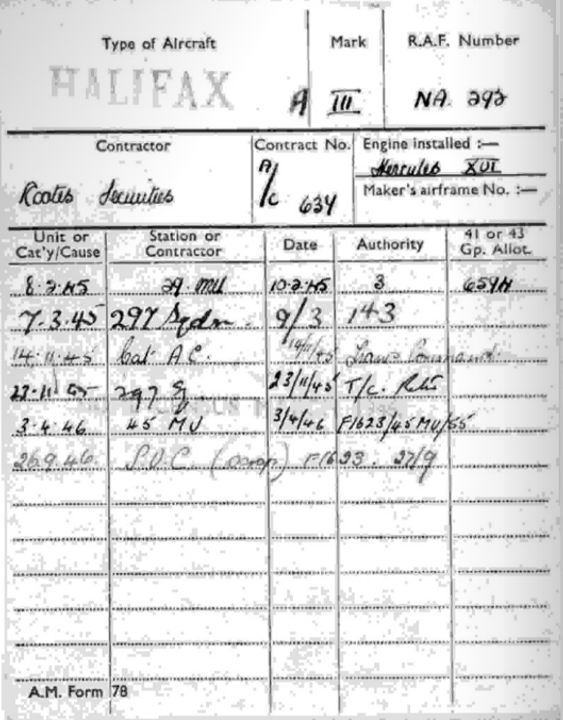 Type of Aircraft Mark R.A.F. Number
HALIFAX A III NA 292
Contractor Contract No. Engine installed :—
Hercules XVI
Rootes Securities A/c 634 Maker's airframe No. :—
Unit or Cat'y/Cause Station or Contractor Date Authority 41 or 43 Gp. Allot.
8.2.45 29. MU 10.2.45 3 659H
7.3.45 297 Sqdn. 9/3 143
14.11.45 Cat A.C. 14/11/45 Trans Command.
22.11.45 297 Sq 23/11/45 T/c.
3.4.46 45 MU 3/4/46 F1623/45MU/55
26.9.46 S.O.C. (scrap) F1623. 27/9
A.M. Form 78